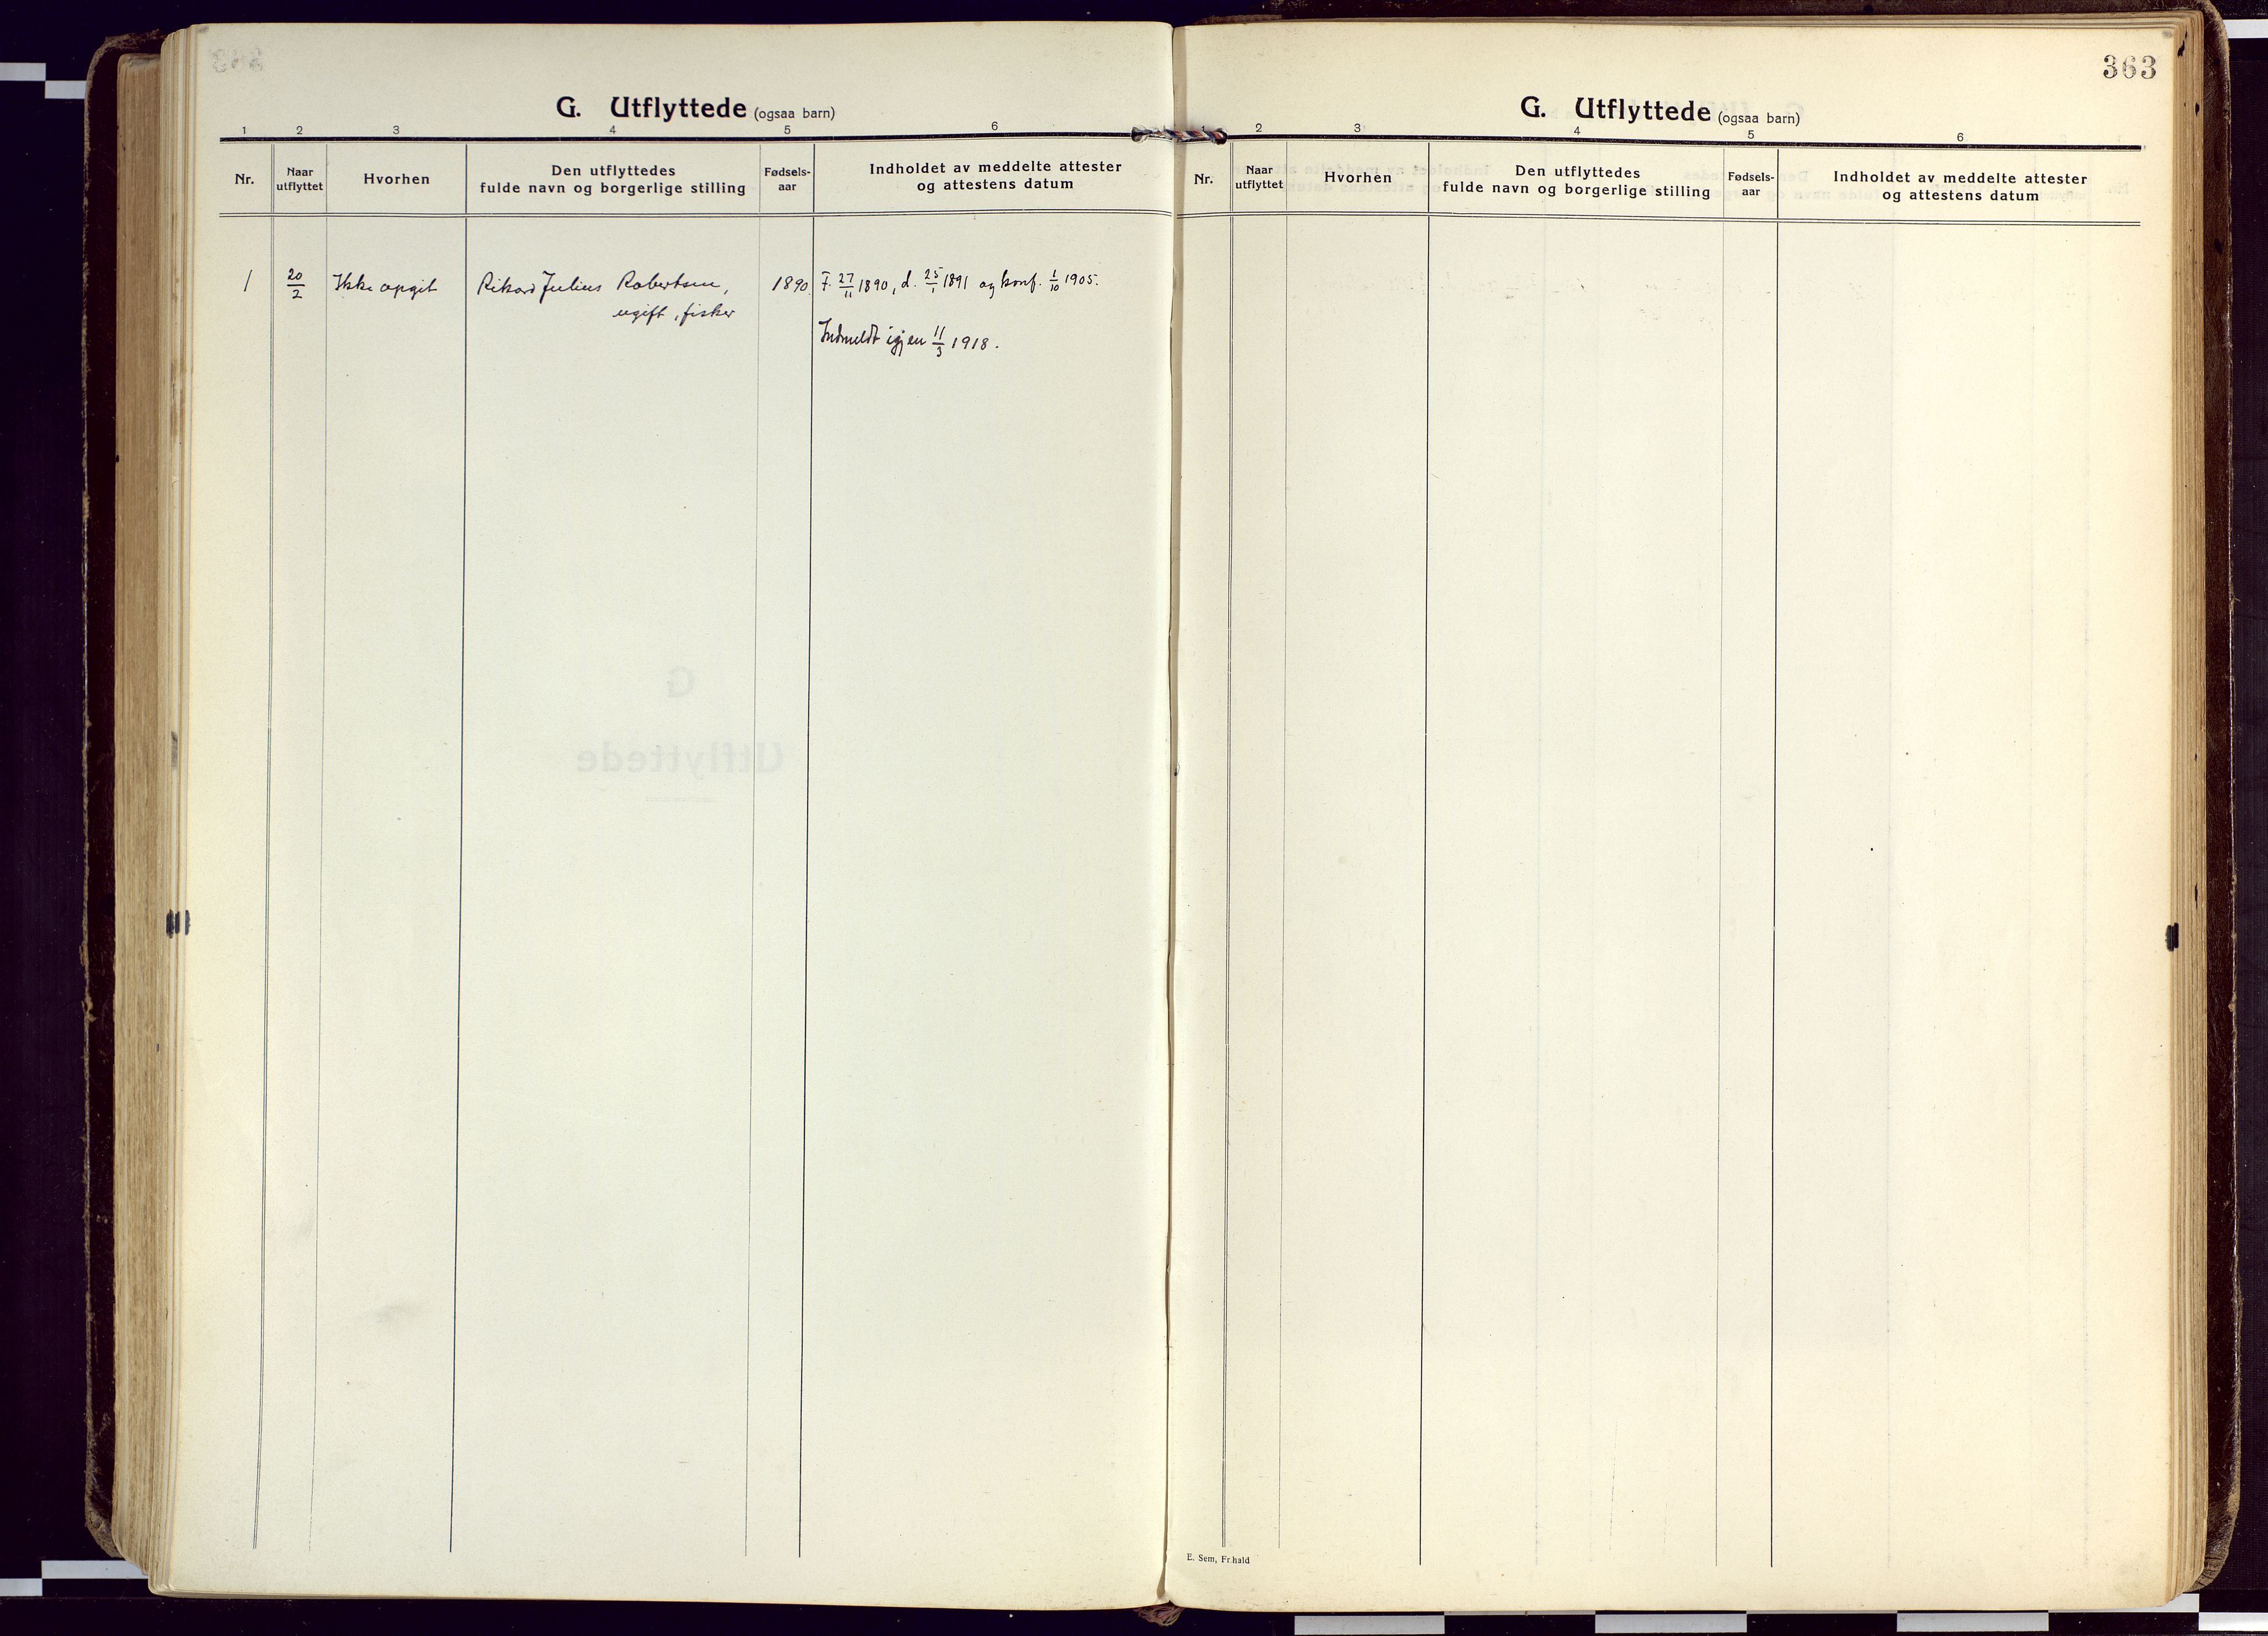 G. Utflyttede (ogsaa barn)
1 2 3 4 5 6
Nr. Naar utflyttet Hvorhen Den utflyttedes fulde navn og borgerlige stilling Fødsels-aar Indholdet av meddelte attester og attestens datum
1 20/2 Ikke opgit Rikard Julius Robertsen, 1890 F. 27/11 1890, d. 25/1 1891 og konf. 1/10 1905.
ugift, fisker
Indmeldt igjen 11/3 1918.
363
G. Utflyttede (ogsaa barn)
1 2 3 4 5 6
Nr. Naar utflyttet Hvorhen Den utflyttedes fulde navn og borgerlige stilling Fødsels-aar Indholdet av meddelte attester og attestens datum
E. Sem, Fr.hald